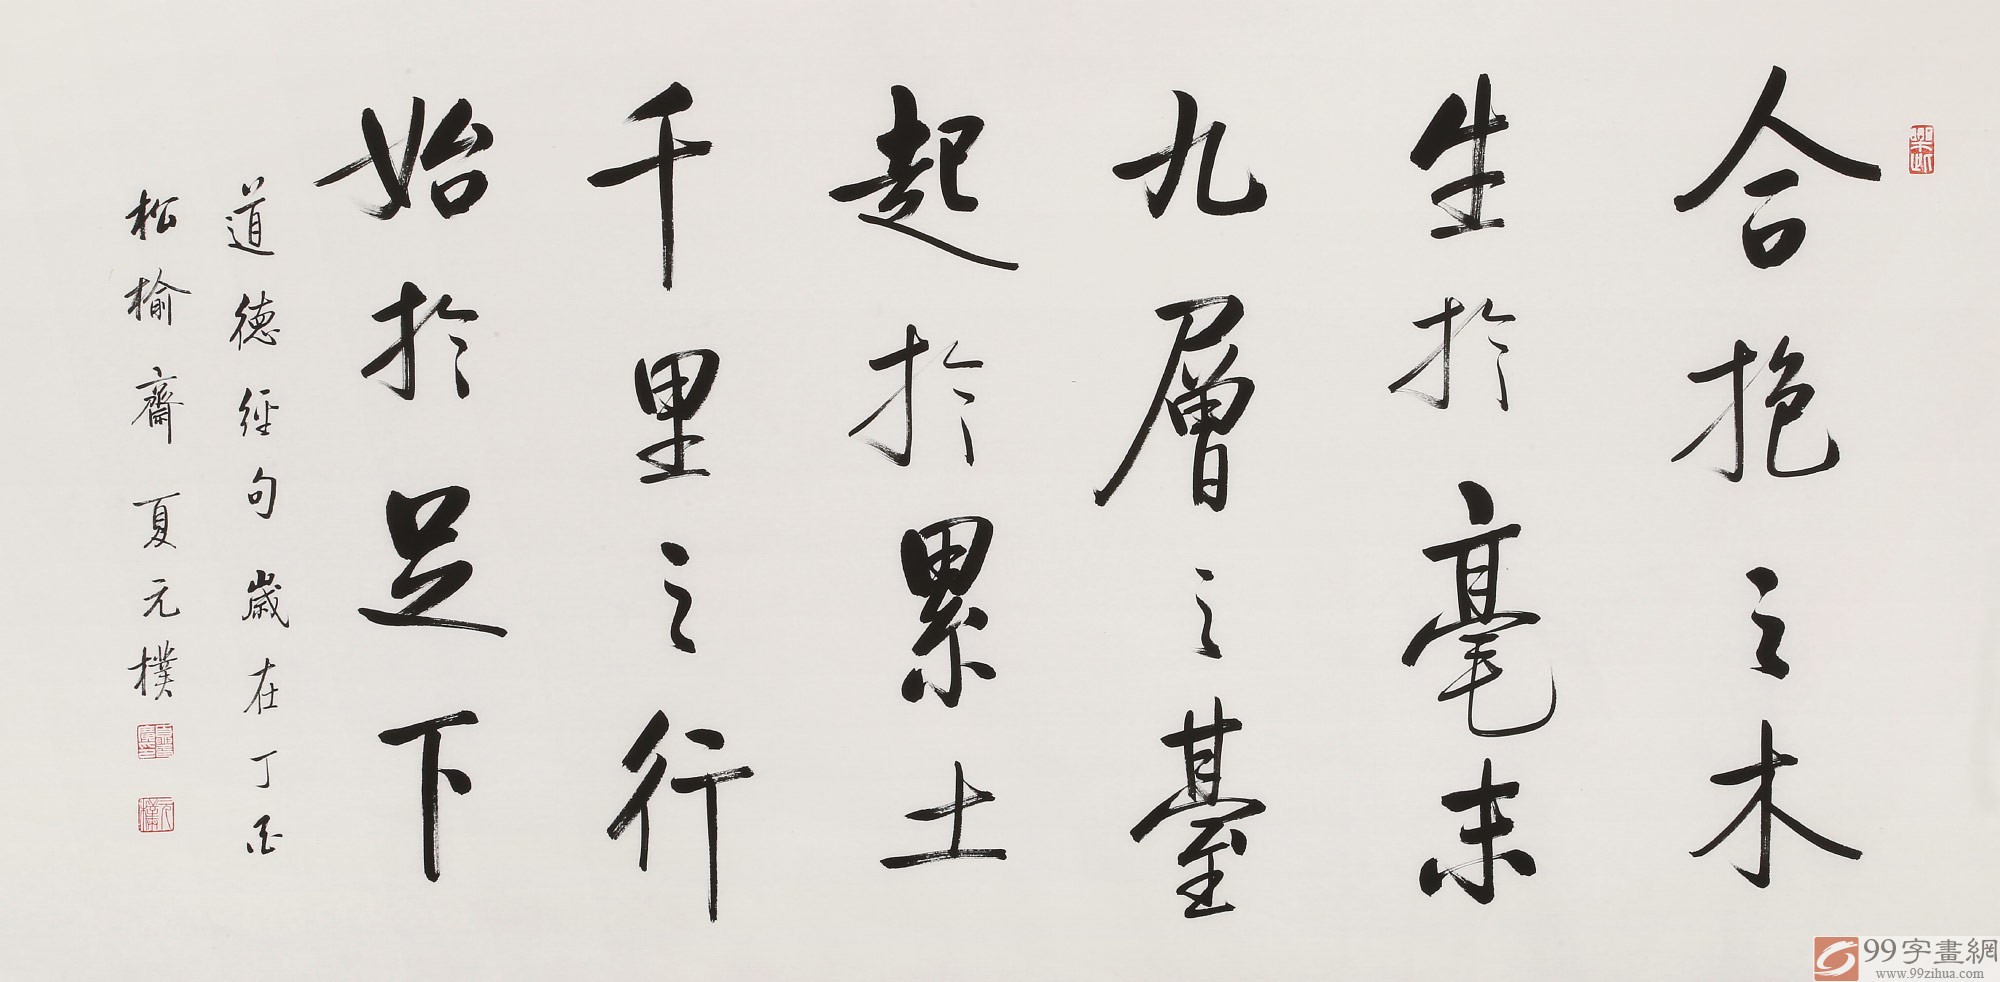 合抱之木
生於毫末
九層之臺
起於累土
千里之行
始於足下
道德經句歲在丁酉
松榆齋夏元樸
99字畫網
www.99zihua.com